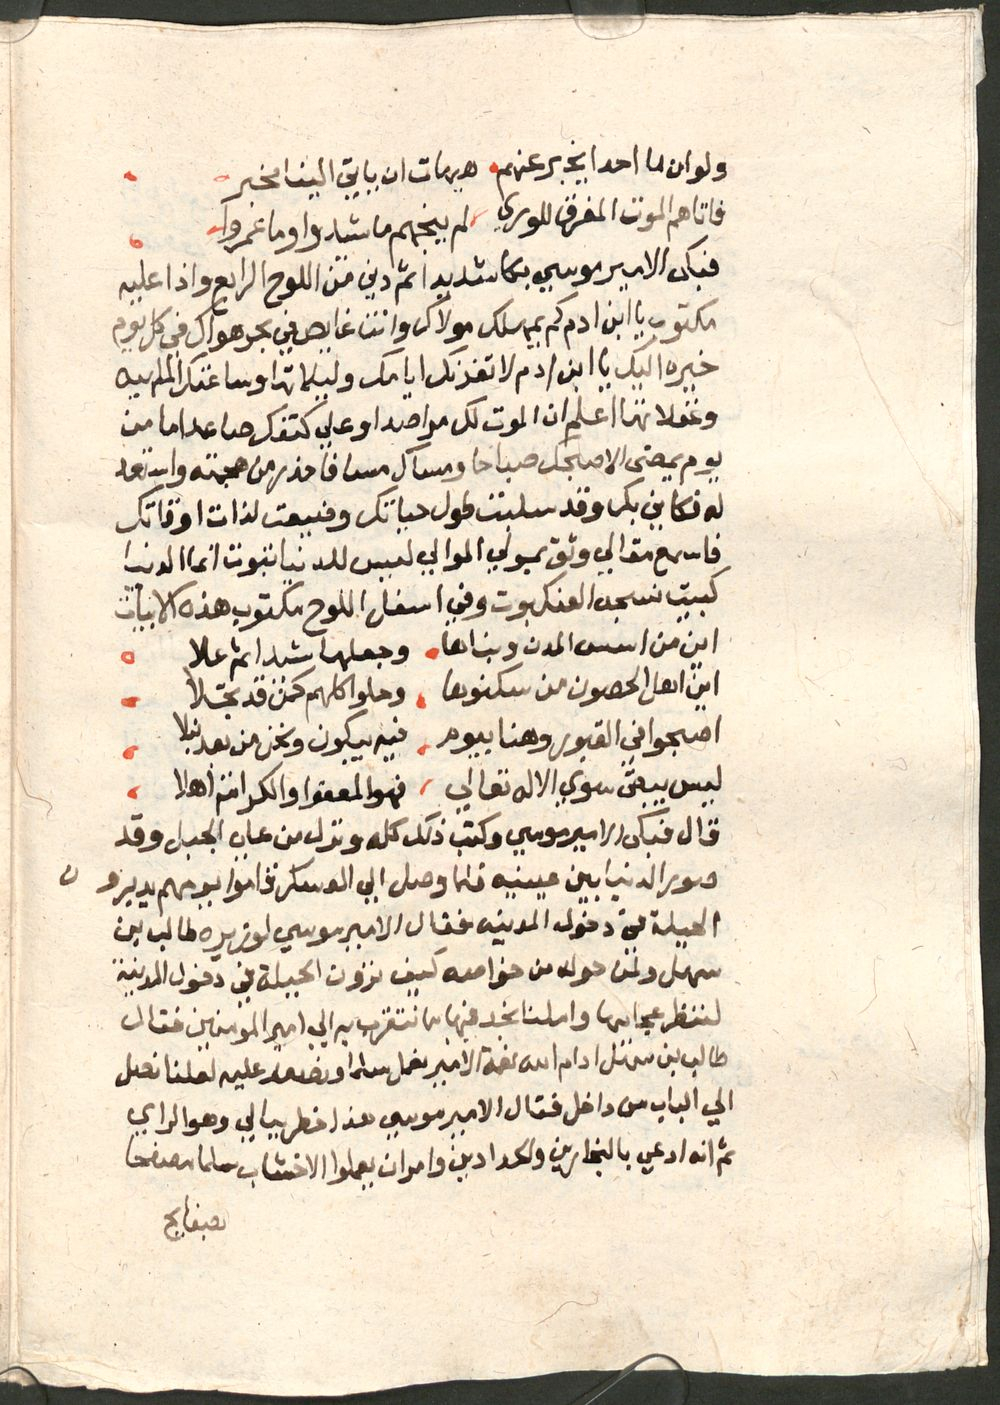 ولو ان لنا احدا يخبر عنهم هيهات ان ياتي الينا مخبر
فاتاهم الموت المفرق للوري لم ينجهم ما شدوا وما عمروا
فبكى الامير موسي بكا شديدا ثم دني من اللوح الرابع واذا عليه
مكتوب يا ابن ادم كم يمهلك مولاك وانت غايص في بحر هواك في كل يوم
خيره اليك يا ابن ادم لا تغرنك ايامك ولياليها وساعتك الملهيه
وغفلاتها اعلم ان الموت لك مراصدا وعلي كتفك صاعدا ما من
يوم يمضي الا صبحك صباحا ومساك مسا فاحذر من هجمته واستعد
له فكاني بك وقد سلبت طول حياتك وضيعت لذات اوقاتك
فاسمع مقالي وثق بمولي الموالي ليس للدنيا ثبوت انما الدنيا
كبيت نسجه العنكبوت وفي اسفل اللوح مكتوب هذه الابيات
اين من اسس المدن وبناها وجعلها شدا ثم علا
اين اهل الحصون من سكنوها وحلوا كلهم كمن قد
اصبحوا في القبور وهنا بيوم فيه يبكون ونحن من بعد نبلا
ليس يبقى سوي الاله تعالي فهو العفو والكرامة اهلا
قال فبكى الامير موسي وكتب ذلك كله ونزل من على الجبل وقد
صور الدنيا بين عينيه فلما وصل الي العسكر قاموا يومهم يدبرون
الحيلة في دخول المدينه فقال الامير موسي لوزيره طالب بن
سهل ولمن حوله من خواصه كيف تروت الحيلة في دخول المدينة
لننظر عجايبها واملنا نجد فيها ما نتقرب به الي امير المومنين فقال
طالب بن سهل ادام الله نعمة الامير نعمل سلما ونصعد عليه لعلنا نصل
الي الباب من داخل فقال الامير موسي هذا خطر ببالي وهو الراي
ثم انه ادعي بالنجارين والحدادين وامر ان يعملوا الاخشاب سلما مصفحا
بصفايح